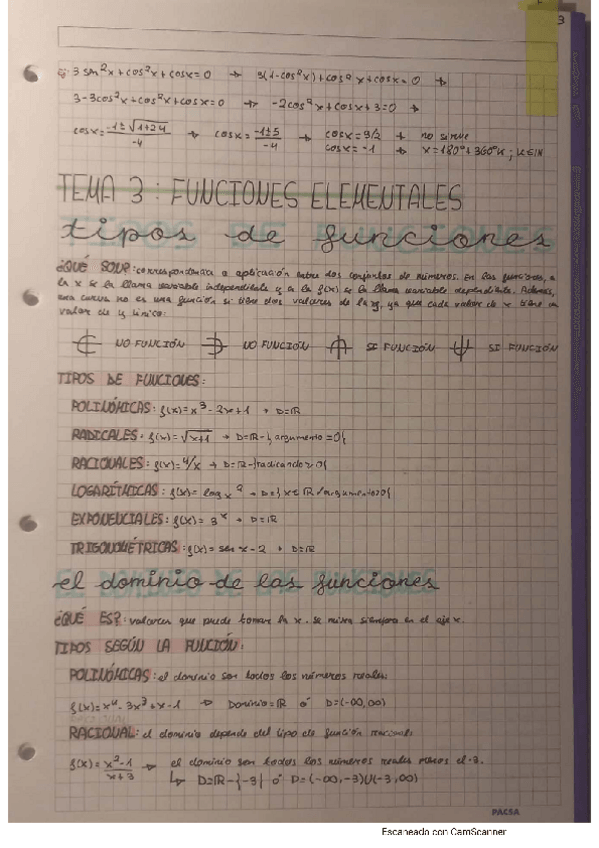 3
Ej: 3 sen²x + cos²x + cosx = 0 → 3(1-cos²x) + cos²x + cosx = 0 →
3-3cos²x + cos²x + cosx = 0 → -2cos²x + cosx + 3 = 0 →
cosx = -1±√1+24 / -4 → cosx = -1±5 / -4 → cosx = 3/2 → no sirve
cosx = -1 → x = 180° + 360°K ; K∈IN
TEMA 3: FUNCIONES ELEMENTALES
tipos de funciones
¿QUÉ SON?: correspondencia o aplicación entre dos conjuntos de números. En las funciones, a
la x se la llama variable independiente y a la f(x) se la llama variable dependiente. Además,
una curva no es una función si tiene dos valores de la y, ya que cada valor de x tiene un
valor de y único:
NO FUNCIÓN NO FUNCIÓN SI FUNCIÓN SI FUNCIÓN
TIPOS DE FUNCIONES:
POLINÓMICAS: f(x) = x³ - 2x + 1 → D=IR
RADICALES: f(x) = √x+1 → D=IR-{argumento=0}
RACIONALES: f(x) = 4/x → D=IR-{radicando≥0}
LOGARÍTMICAS: f(x) = log x² → D={x∈IR/argumento>0}
EXPONENCIALES: f(x) = 3ˣ → D=IR
TRIGONOMÉTRICAS: f(x) = sen x - 2 → D=IR
el dominio de las funciones
¿QUÉ ES?: valores que puede tomar la x. se mira siempre en el eje x.
TIPOS SEGÚN LA FUNCIÓN:
POLINÓMICAS: el dominio son todos los números reales.
f(x) = x⁴ - 3x³ + x - 1 → Dominio=IR ó D=(-∞,∞)
RACIONAL: el dominio depende del tipo de función racional.
f(x) = x²-1 / x+3 → el dominio son todos los números reales menos el -3.
↳ D=IR-{-3} ó D=(-∞,-3)U(-3,∞)
PACSA
Escaneado con CamScanner